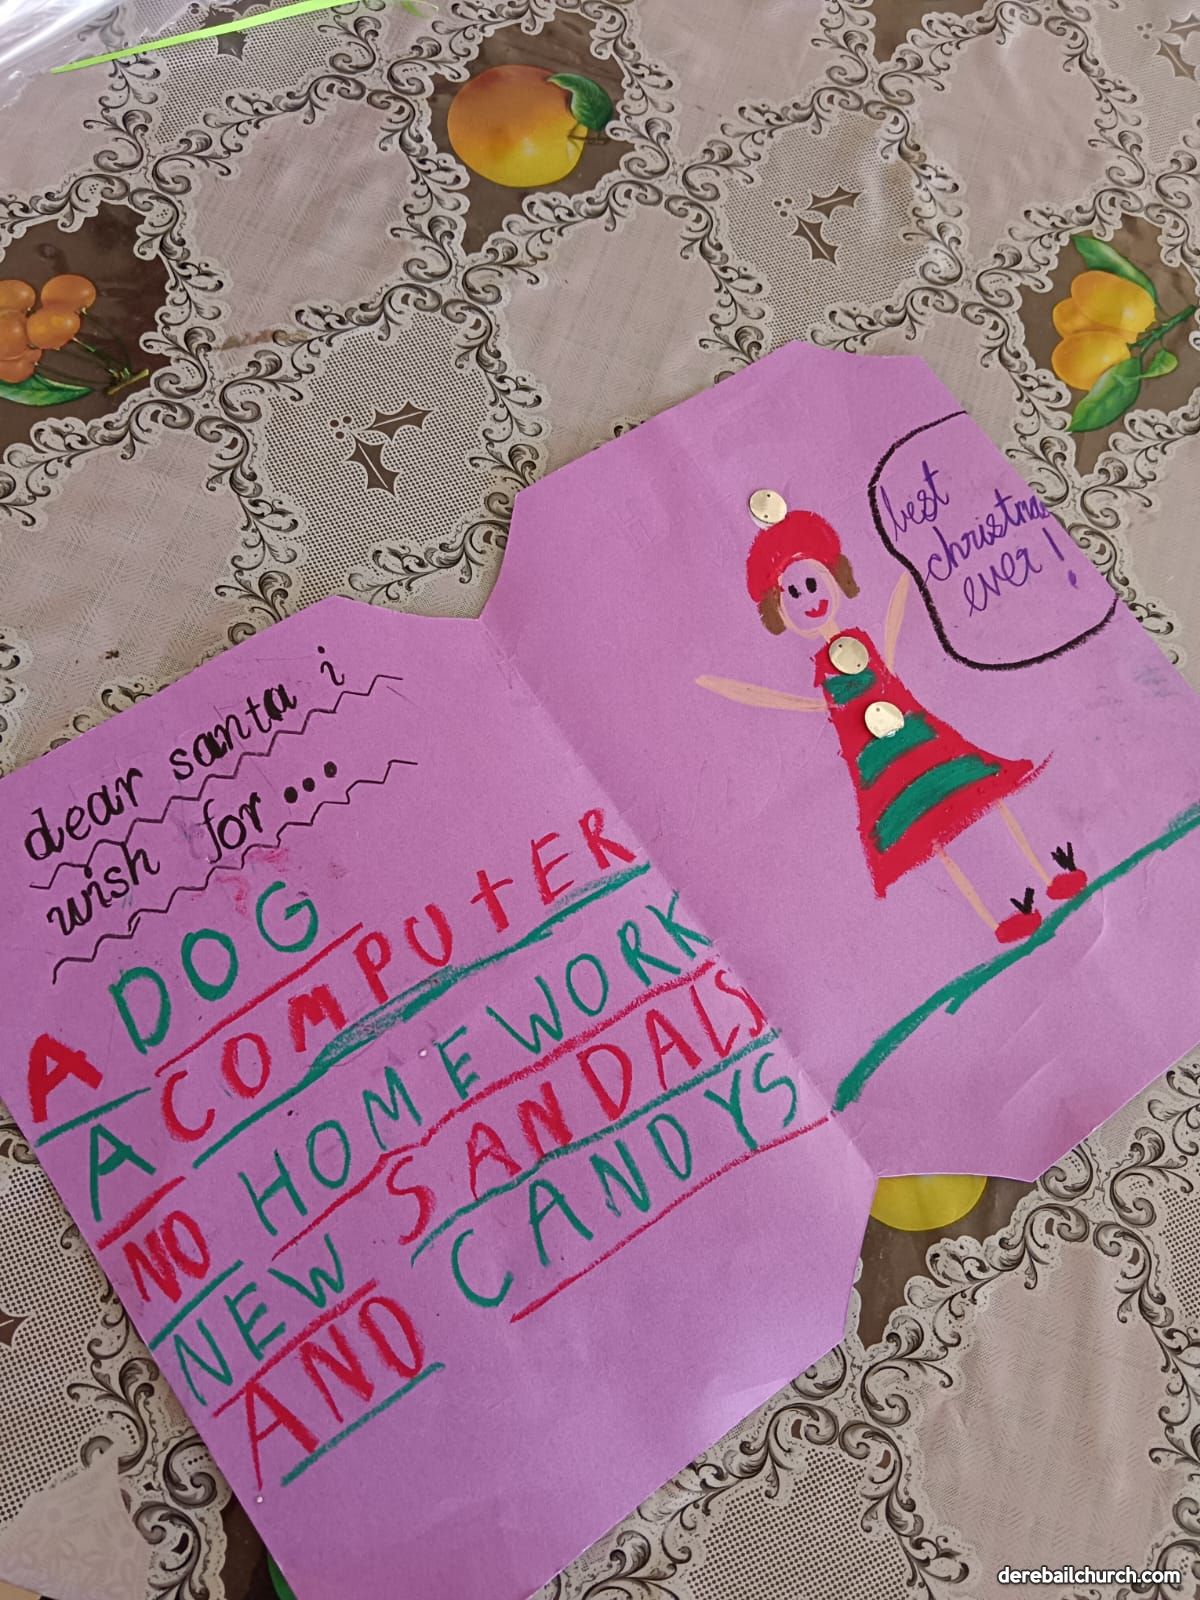 dear santa i
wish for...
A DOG
A COMPUTER
NO HOMEWORK
NEW SANDALS
AND CANDYS
best
christmas
ever!
derebailchurch.com